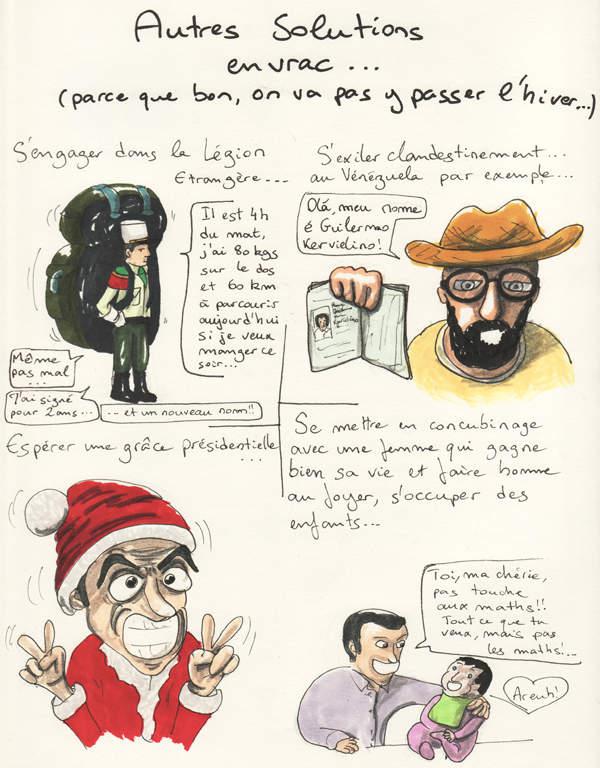 Autres Solutions
en vrac ...
(parce que bon, on va pas y passer l'hiver...)
S'engager dans la Légion
Etrangère...
Il est 4h
du mat,
j'ai 80 kgs
sur le dos
et 60 km
à parcourir
aujourd'hui
si je veux
manger ce
soir...
Même
pas mal
...
J'ai signé
pour 2 ans...
... et un nouveau nom!!
S'exiler clandestinement...
au Vénézuela par exemple...
Olá, meu nome
é Guilermo
Kervielino!
Espérer une grâce présidentielle
...
Se mettre en concubinage
avec une femme qui gagne
bien sa vie et faire homme
au foyer, s'occuper des
enfants...
Toi, ma chérie,
pas touche
aux maths!!
Tout ce que tu
veux, mais pas
les maths!...
Areuh!